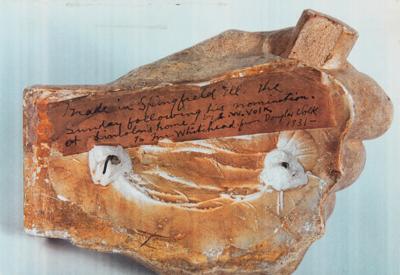 Made in Springfield Ill. the
Sunday following his nomination.
at Lincoln's home, by L.W. Volk
To Mr Whitehead from Douglas Volk
1931-